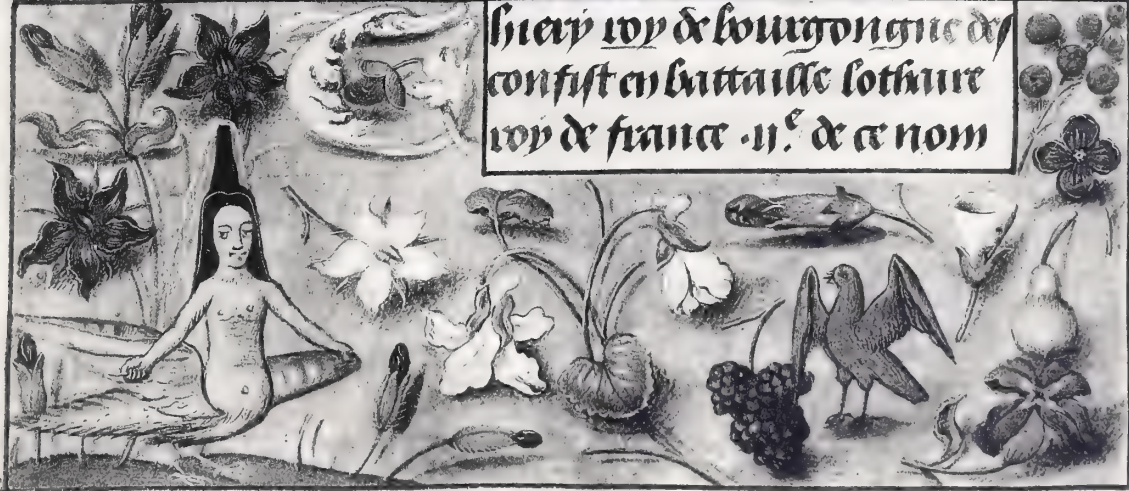 hiery roy de bourgongne des
confist en battaille lothaire
roy de france .ii.e de ce nom